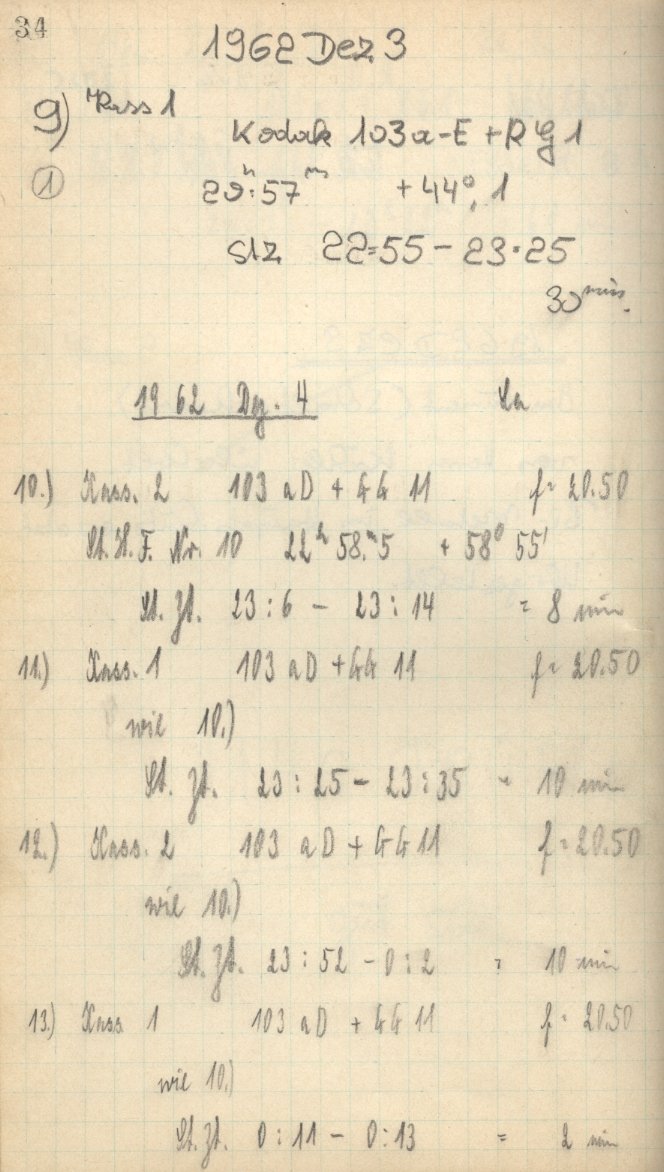 34
1962 Dez 3
9) Kass 1
Kodak 103a-E + RG1
①
+44°,1
StZ 22:55 - 23:25
30 min.
1962 Dez. 4 La
10.) Kass. 2 103 aD + GG 11 f = 20.50
St. H. F. Nr. 10 22ʰ 58.ᵐ5 + 58° 55'
St. Zt. 23:6 - 23:14 = 8 min
11.) Kass. 1 103 aD + GG 11 f = 20.50
wie 10.)
St. Zt. 23:25 - 23:35 = 10 min
12.) Kass. 2 103 aD + GG 11 f = 20.50
wie 10.)
St. Zt. 23:52 - 0:2 = 10 min
13.) Kass 1 103 aD + GG 11 f = 20.50
wie 10.)
St. Zt. 0:11 - 0:13 = 2 min